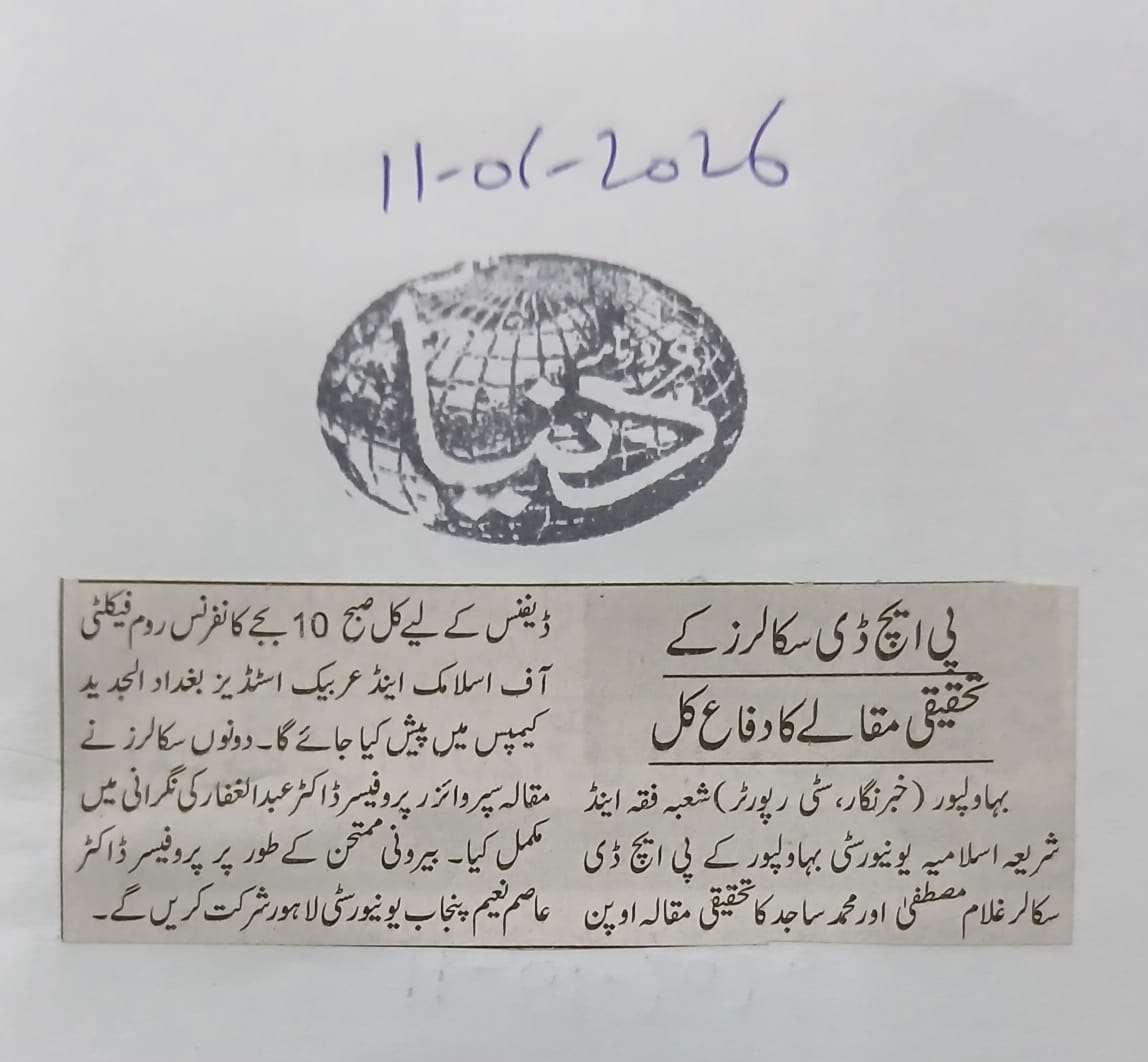 11-01-2026
روزنامہ
دنیا
پی ایچ ڈی سکالرز کے
تحقیقی مقالے کا دفاع کل
بہاولپور (خبرنگار، سٹی رپورٹر) شعبہ فقہ اینڈ
شریعہ اسلامیہ یونیورسٹی بہاولپور کے پی ایچ ڈی
سکالر غلام مصطفیٰ اور محمد ساجد کا تحقیقی مقالہ اوپن
ڈیفنس کے لیے کل صبح 10 بجے کانفرنس روم فیکلٹی
آف اسلامک اینڈ عریبک اسٹڈیز بغداد الجدید
کیمپس میں پیش کیا جائے گا۔ دونوں سکالرز نے
مقالہ سپروائزر پروفیسر ڈاکٹر عبدالغفار کی نگرانی میں
مکمل کیا۔ بیرونی ممتحن کے طور پر پروفیسر ڈاکٹر
عاصم نعیم پنجاب یونیورسٹی لاہور شرکت کریں گے۔